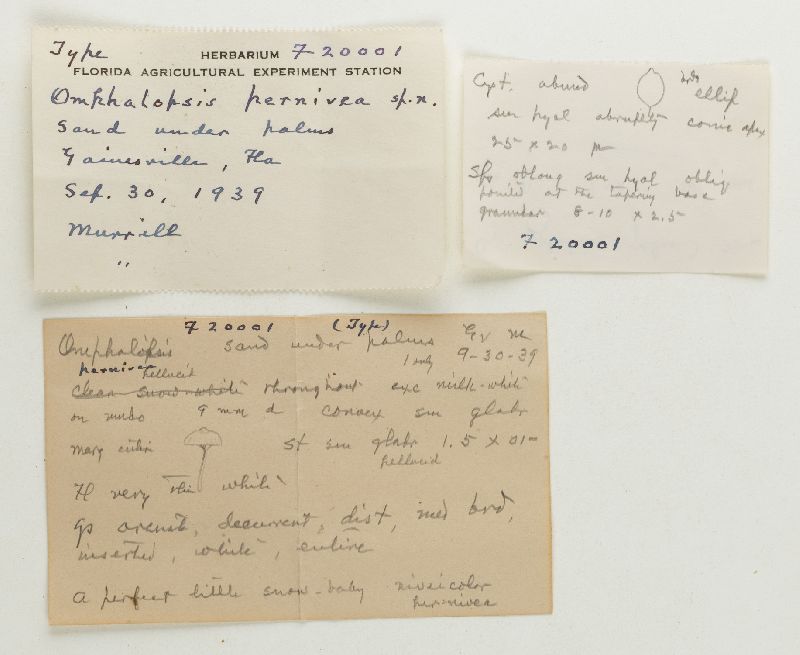 Type HERBARIUM F 20001
FLORIDA AGRICULTURAL EXPERIMENT STATION
Omphalopsis pernivea sp.n.
Sand under palms
Gainesville, Fla
Sep. 30, 1939
Murrill
"
Cyst. abund ellip
sm hyal abruptly conic apex
25 x 20 μ
Sps oblong sm hyal obliq
pointed at the tapering base
granular 8-10 x 2.5
F 20001
F 20001 (Type)
Omphalopsis sand under palms Gv M
pernivea 1 only 9-30-39
pellucid
clear snow-white throughout exc milk-white
on umbo 9 mm d convex sm glabr
marg entire St sm glabr 1.5 x .01-
pellucid
Fl very thin white
Gs arcuate, decurrent, dist, med brd,
inserted, white, entire
A perfect little snow-baby niveicolor
per-nivea